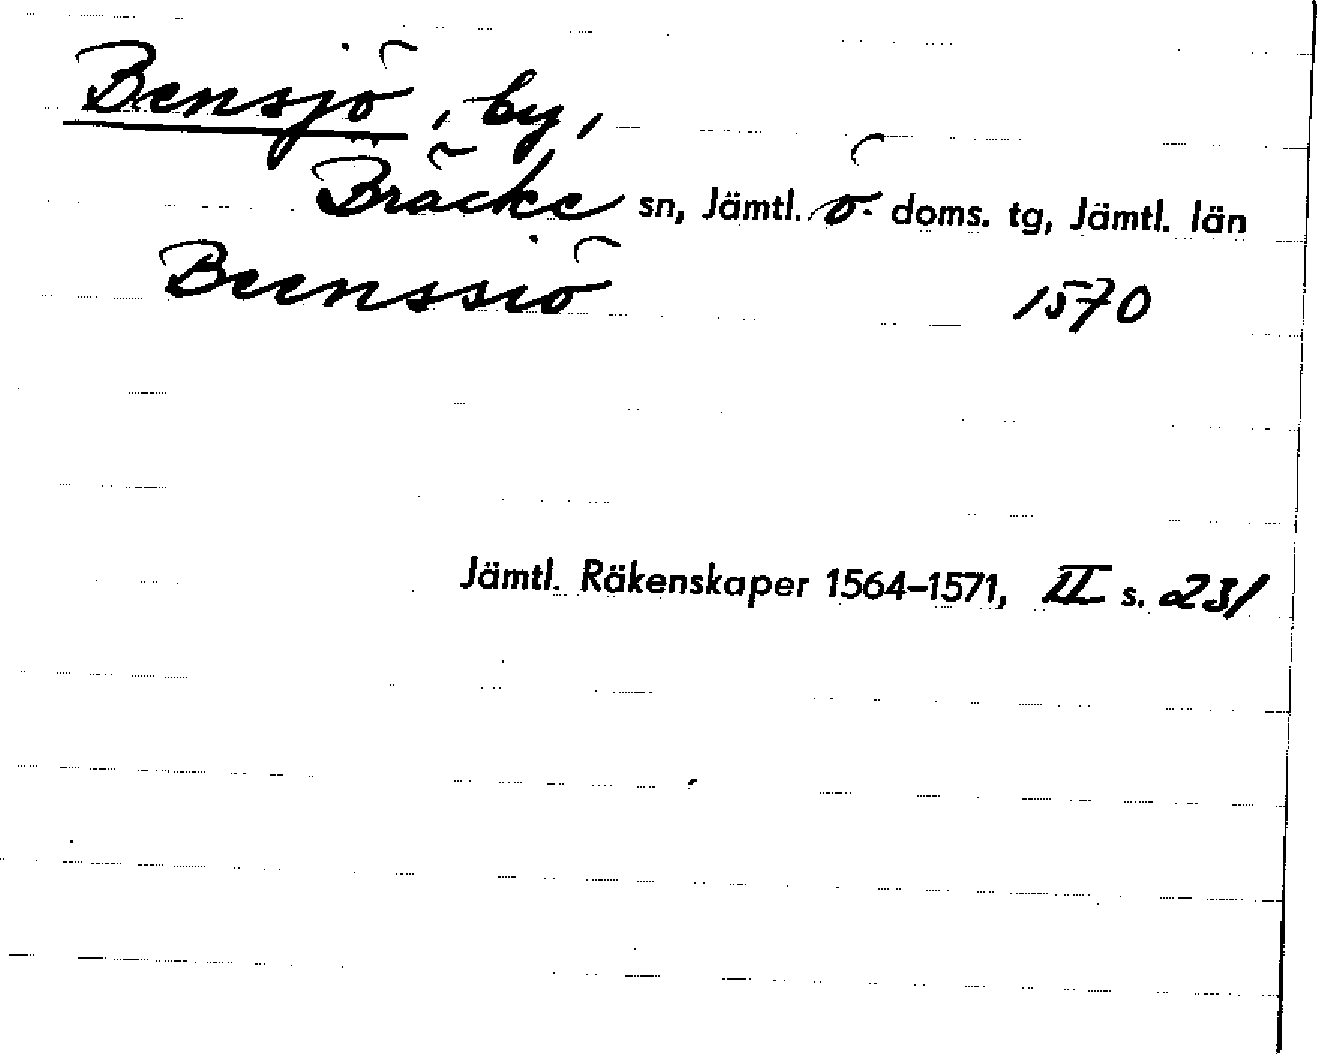 Bensjö, by,
Bräcke sn, Jämtl. ö. doms. tg, Jämtl. län
Beenssiö 1570
Jämtl. Räkenskaper 1564–1571, II s. 231